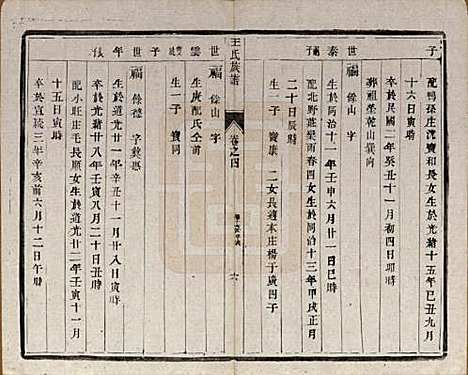 子
配鴨張庄沈寶和長女生於光緒十五年己丑九月
十六日寅時
卒於民國二年癸丑十一月初四日卯時
葬祖塋乾山巽向
世泰
世福 餘山 字
生於同治十一年壬申六月廿一日丑時
配北野莊梁雨春四女生於同治十三年甲戌正月
二十日辰時
生一子 寶康 二女長適本庄楊子寅四子
王氏族譜
卷之四
六
世雲
世福 餘山 字
生 庚 配氏全前
生一子 寶同
子
世福 餘德 字
生於道光廿一年辛丑十一月廿八日寅時
卒於光緒廿八年壬寅八月二十日丑時
年
配小旺庄毛長順女生於道光二十二年壬寅十一月
十五日寅時
卒於宣統三年辛亥前六月十二日午時